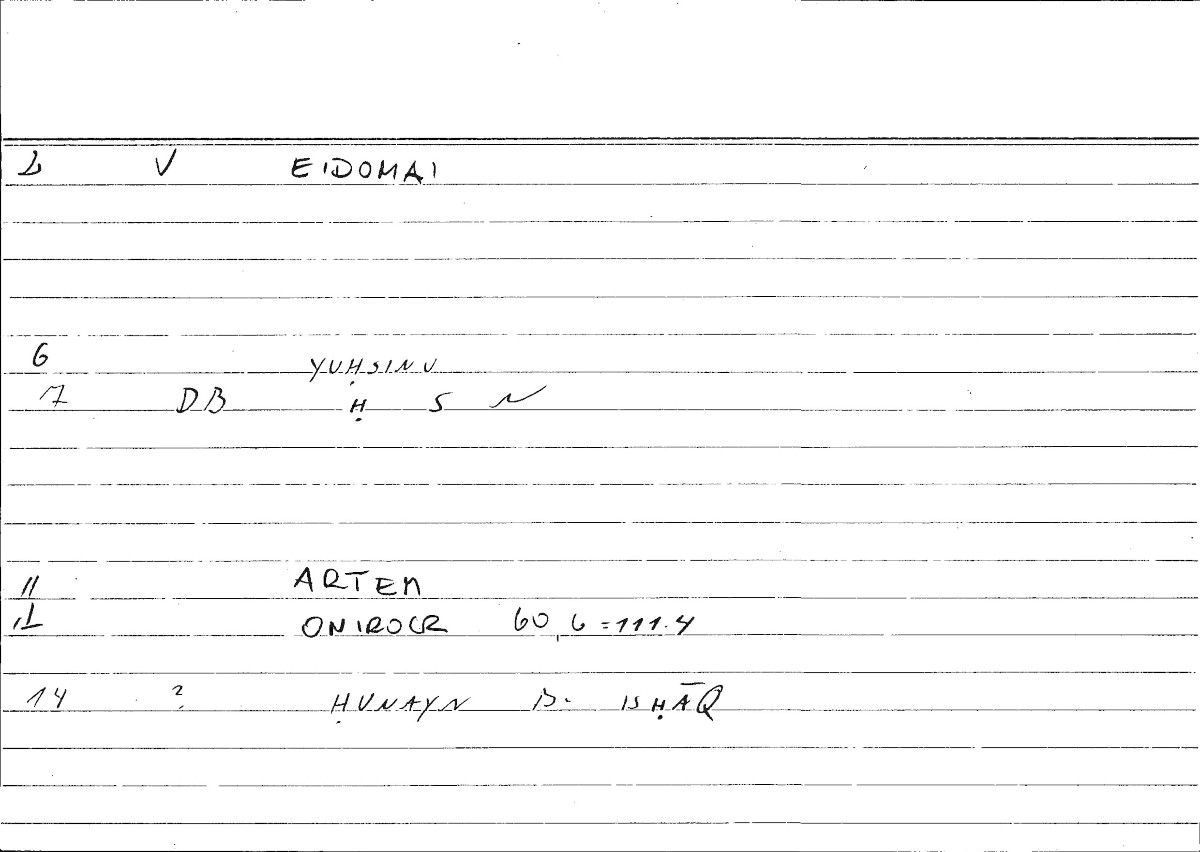 2 V EIDOMAI
6 YUḤSINU
7 DB Ḥ S N
11 ARTEM
12 ONIROCR 60,6=111.4
14 ? ḤUNAYN B. ISḤĀQ